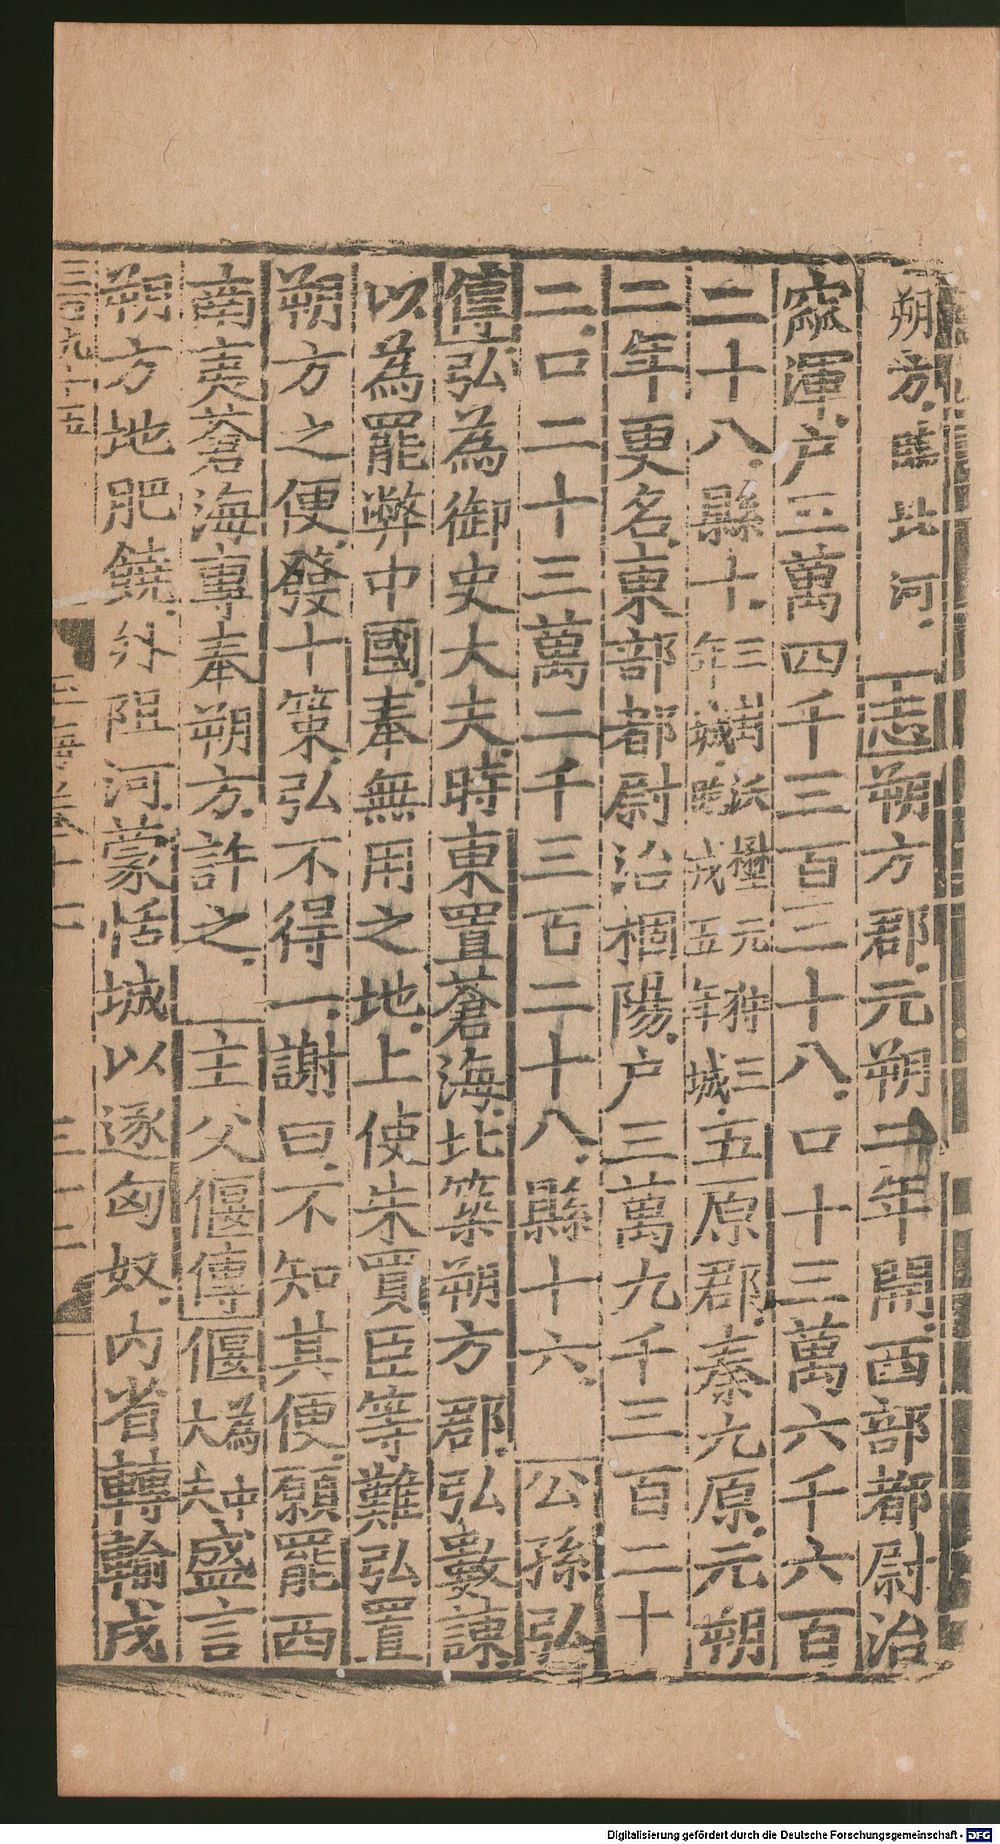 朔方臨北河志朔方郡元朔二年開西部都尉治
窳渾戶三萬四千三百三十八口十三萬六千六百
二十八縣十三年城臨戎五年城三封沃壄元狩三五原郡秦九原元朔
二年更名東部都尉治稒陽戶三萬九千三百二十
二口二十三萬二千三百二十八縣十六公孫弘
傳弘為御史大夫時東置蒼海北築朔方郡弘數諫
以為罷弊中國奉無用之地上使朱買臣等難弘置
朔方之便發十策弘不得一謝曰不知其便願罷西
南夷蒼海專奉朔方許之主父偃傳偃為中大夫盛言
朔方地肥饒外阻河蒙恬城以逐匈奴內省轉輸戍
三百九十五
三十二
Digitalisierung gefördert durch die Deutsche Forschungsgemeinschaft - DFG